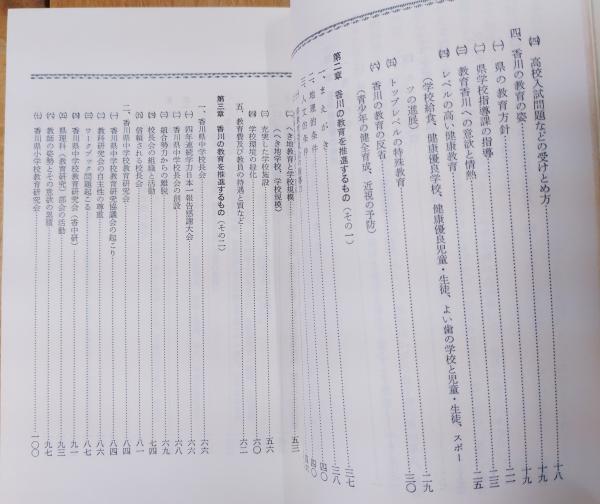 ㈣ 高校入試問題などの受けとめ方……一八
四、香川の教育の姿……一九
㈠ 県の教育方針……一九
㈡ 県学校指導課の指導……二一
㈢ 教育香川への意欲と情熱……二三
㈣ レベルの高い健康教育……二五
(学校給食、健康優良学校、健康優良児童・生徒、よい歯の学校と児童・生徒、スポー
ツの進展)
㈤ トップレベルの特殊教育……二九
㈥ 香川の教育の反省……三〇
(青少年の健全育成、近視の予防)
第二章 香川の教育を推進するもの(その一)
一、まえがき……三七
二、地理的条件……三八
三、人文的条件……四〇
㈡ へき地教育と学校規模……五三
(へき地学校、学校規模)
㈢ 充実した学校施設……五六
㈣ 学校環境の緑化……六〇
五、教育費及び教員の待遇と質など……六二
第三章 香川の教育を推進するもの(その二)
一、香川県中学校長会……六六
㈠ 四年連続学力日本一報告感謝大会……六六
㈡ 香川県中学校長会の創設……六六
㈢ 組合勢力からの離脱……六九
㈣ 校長会の組織と活動……七四
㈤ 信頼される校長会……八一
二、香川県中学校教育研究会……八四
㈠ 香川県中学校教育研究協議会の起こり……八四
㈡ 教科研究会の自主性の尊重……八六
㈢ ワークブック問題起こる……八七
㈣ 香川県中学校教育研究会(香中研)……九一
㈤ 県理科(教育研究)部会の活動……九三
㈥ 教師の姿勢とその意欲の累積……九七
㈦ 香川県小学校教育研究会……一〇〇